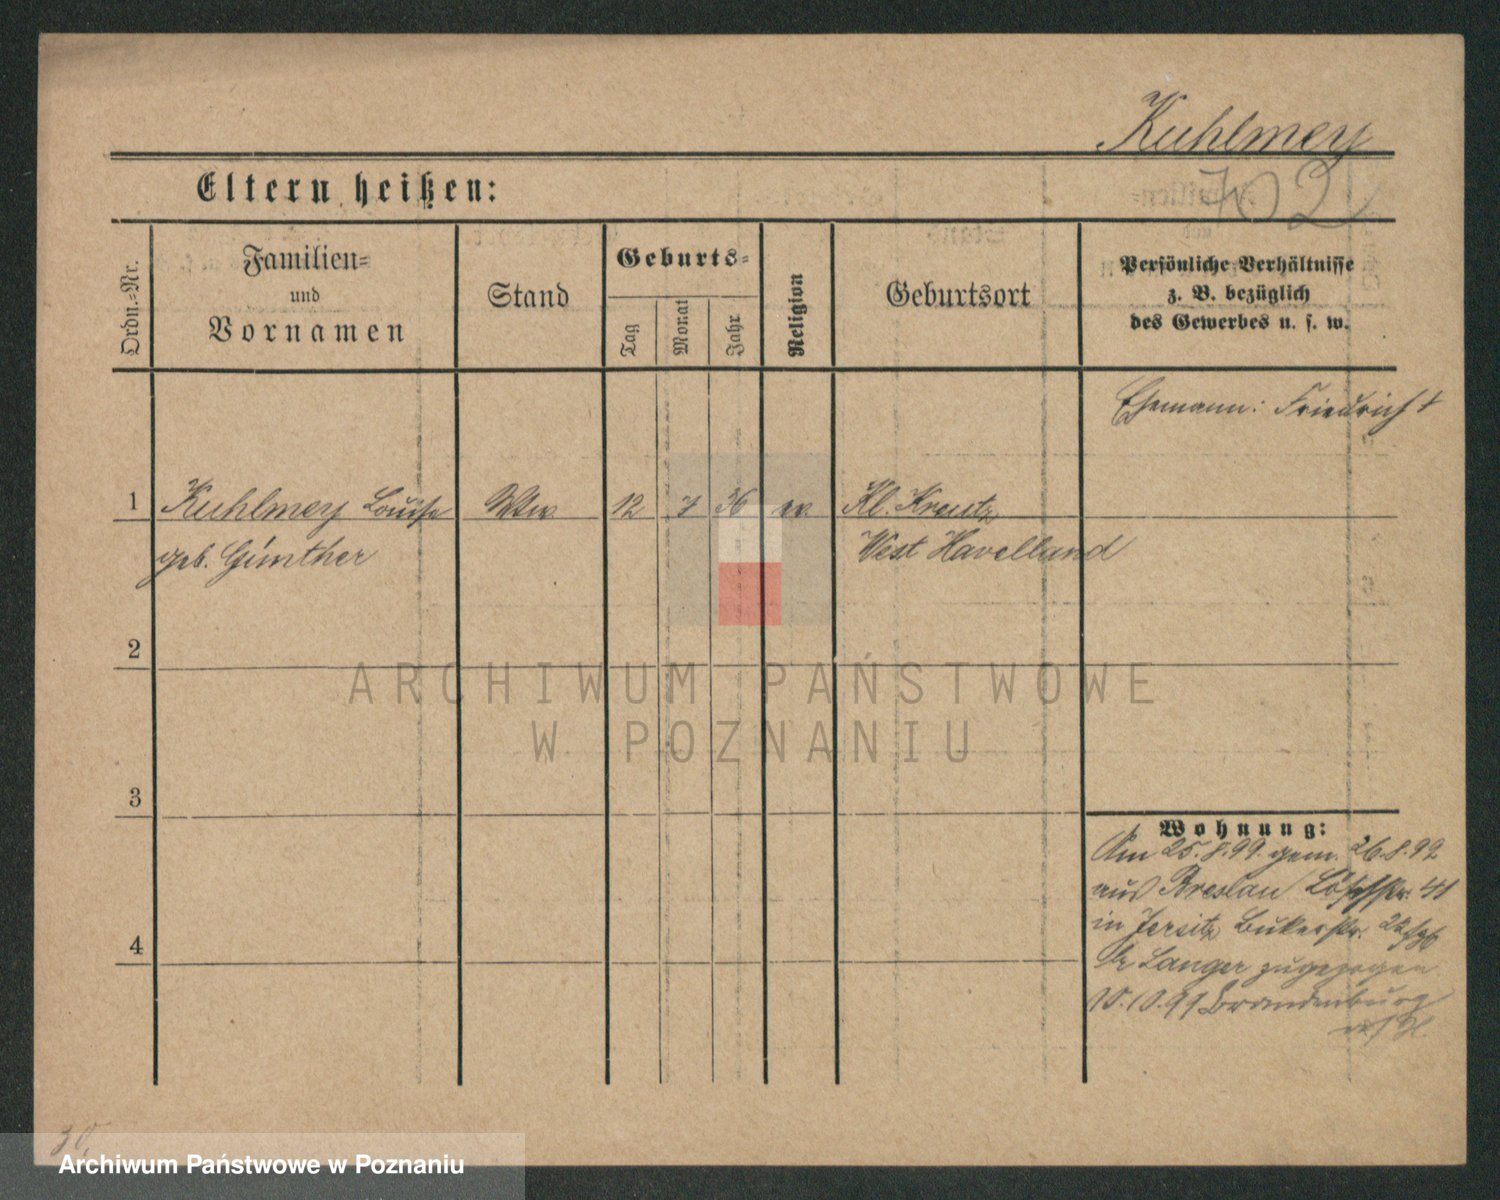 Kuhlmey
702
Eltern heißen:
Ordn.=Nr.
Familien=
und
Vornamen
Stand
Geburts=
Tag
Monat
Jahr
Religion
Geburtsort
Persönliche Verhältnisse
z. B. bezüglich
des Gewerbes u. s. w.
Ehemann: Friedrich †
1 Kuhlmey Louise Wtw. 12 7 36 ev. Kl. Kreutz
geb. Günther West Havelland
2
ARCHIWUM PAŃSTWOWE
W POZNANIU
3
Wohnung:
Am 25.8.99. gem. 26.8.99
aus Breslau 41
in Jersitz Bukerstr.
b/ Langer zugezogen
10.10.99 Brandenburg
4
30.
Archiwum Państwowe w Poznaniu